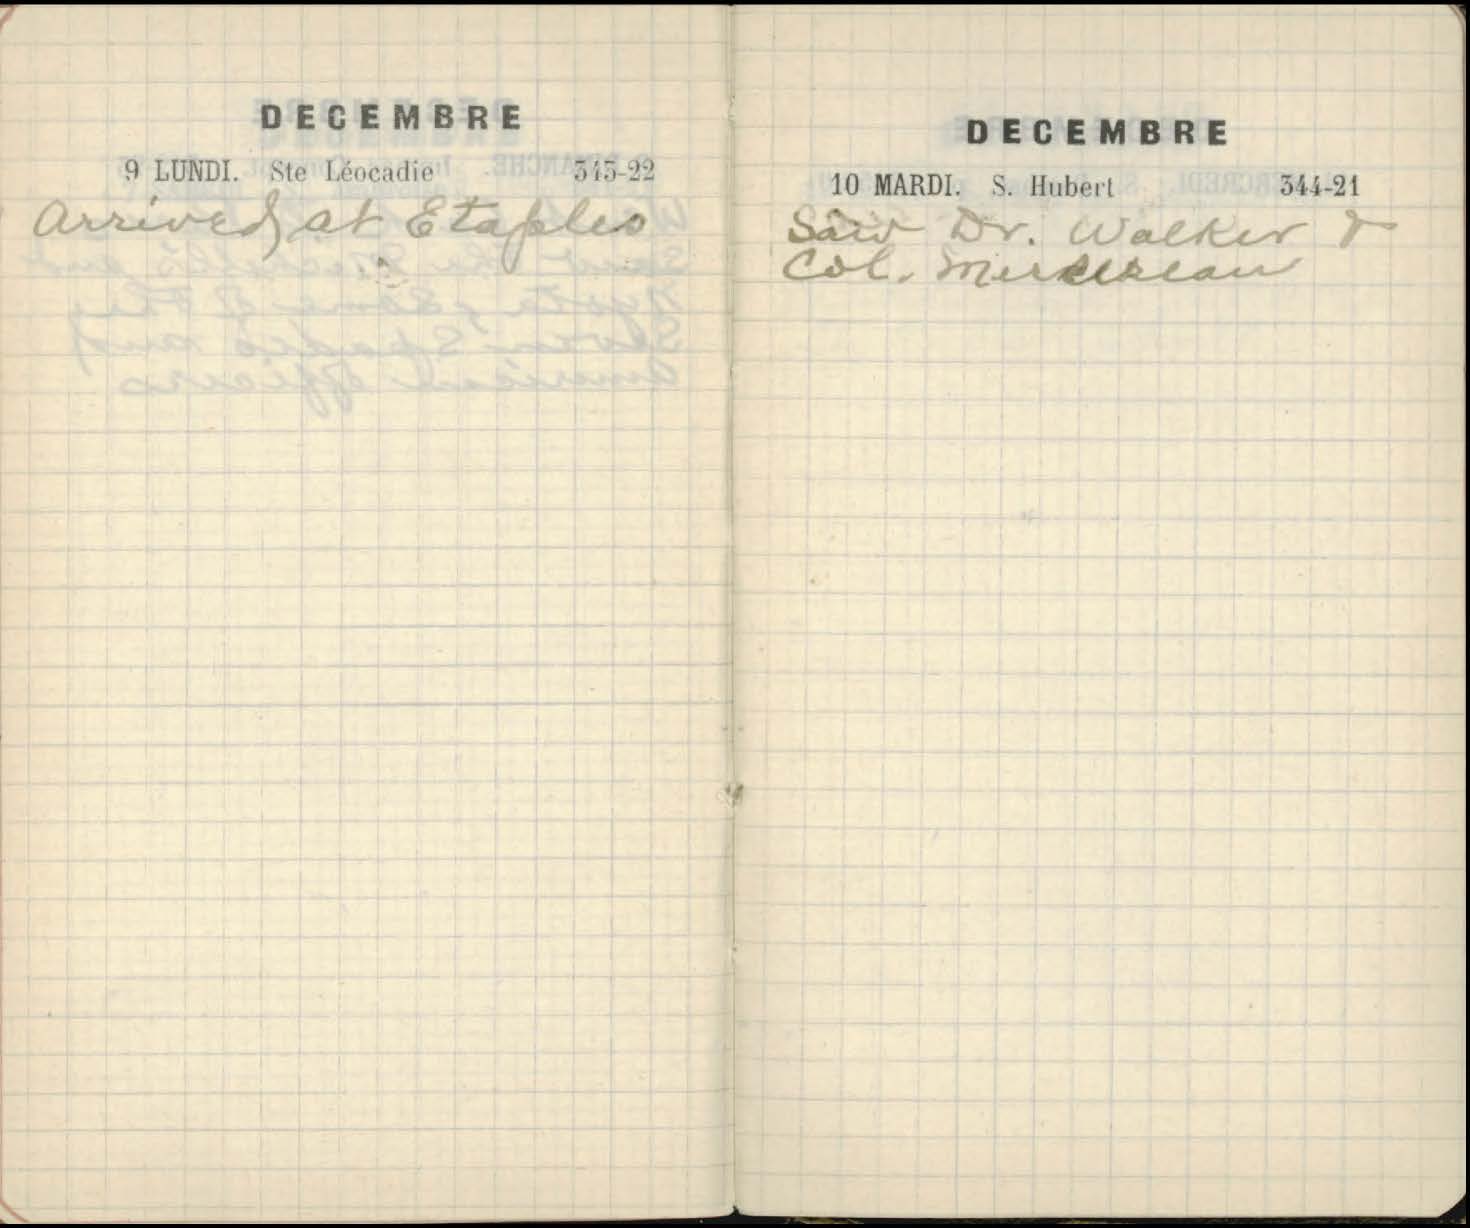 DECEMBRE
9 LUNDI. Ste Léocadie 343-22
Arrived at Etaples
DECEMBRE
10 MARDI. S. Hubert 344-21
Saw Dr. Walker &
Col. Mersereau